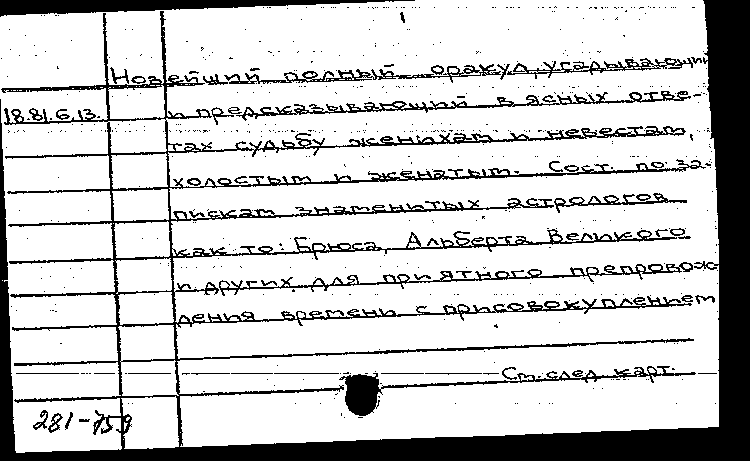 1
Новейший полный оракул, угадывающий
18.81.6.13. и предсказывающий в ясных отве-
тах судьбу женихам и невестам,
холостым и женатым. Сост. по за-
пискам знаменитых астрологов
как то: Брюса, Альберта Великого
и других для приятного препровож-
дения времени с присовокуплением
См. след. карт.
281-759